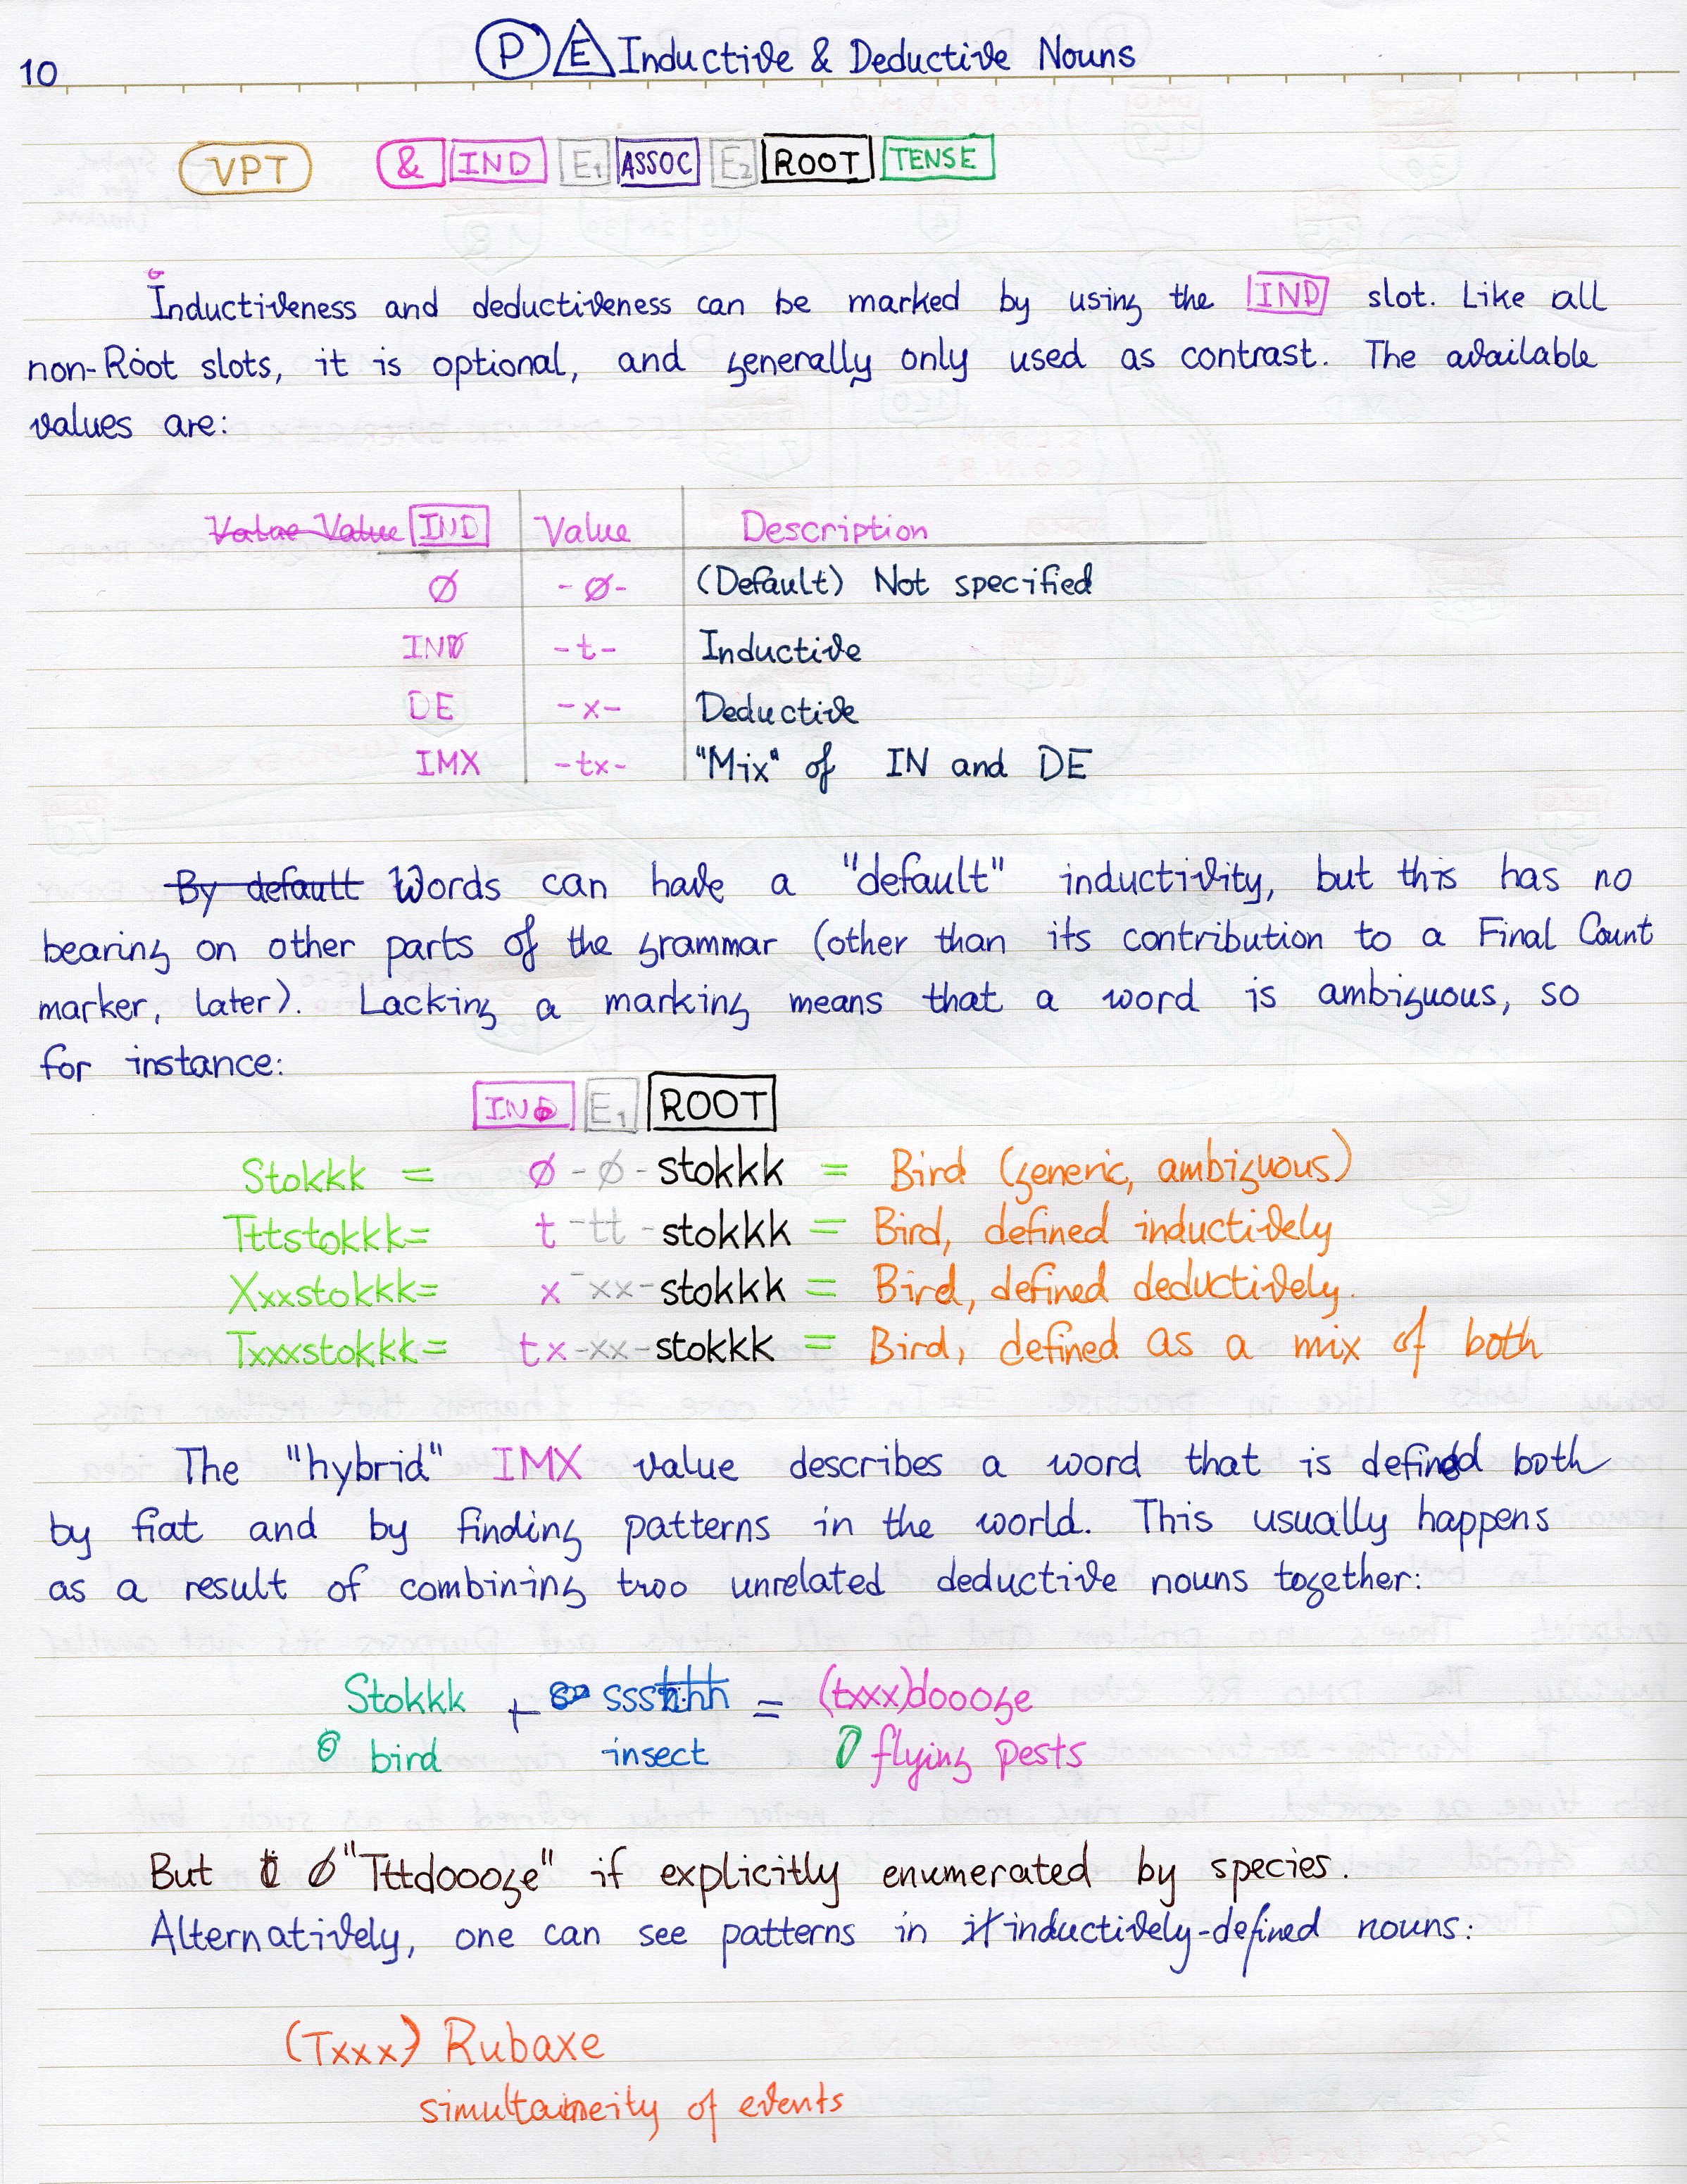 10
P E Inductive & Deductive Nouns
VPT & IND E1 ASSOC E2 ROOT TENSE
Inductiveness and deductiveness can be marked by using the IND slot. Like all
non-Root slots, it is optional, and generally only used as contrast. The available
values are:
Value Value IND Value Description
Ø -Ø- (Default) Not specified
IN -t- Inductive
DE -x- Deductive
IMX -tx- "Mix" of IN and DE
By default Words can have a "default" inductivity, but this has no
bearing on other parts of the grammar (other than its contribution to a Final Count
marker, later). Lacking a marking means that a word is ambiguous, so
for instance:
IND E1 ROOT
Stokkk = Ø-Ø-stokkk = Bird (generic, ambiguous)
Tttstokkk = t-tt-stokkk = Bird, defined inductively
Xxxstokkk = x-xx-stokkk = Bird, defined deductively.
Txxxstokkk = tx-xx-stokkk = Bird, defined as a mix of both
The "hybrid" IMX value describes a word that is defined both
by fiat and by finding patterns in the world. This usually happens
as a result of combining two unrelated deductive nouns together:
Stokkk + = (txxx)doooge
bird insect flying pests
But Ø "Tttdoooge" if explicitly enumerated by species.
Alternatively, one can see patterns in inductively-defined nouns:
(Txxx) Rubaxe
simultaineity of events